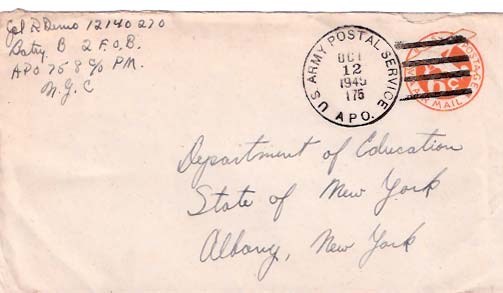 Cpl R Demo 12140270
Batry B 2 F.O.B.
APO 758 c/o P.M.
N.Y.C
U.S. ARMY POSTAL SERVICE
OCT
12
1945
175
A.P.O.
POSTAGE
AIR MAIL
Department of Education
State of New York
Albany, New York